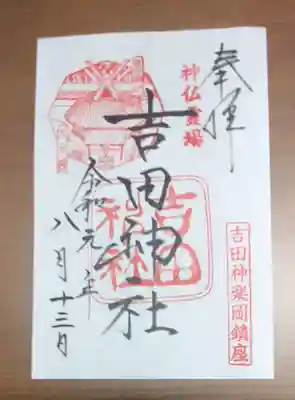 奉拝
神仏霊場
吉田神社
吉田神社
吉田神楽岡鎮座
令和元年
八月十三日